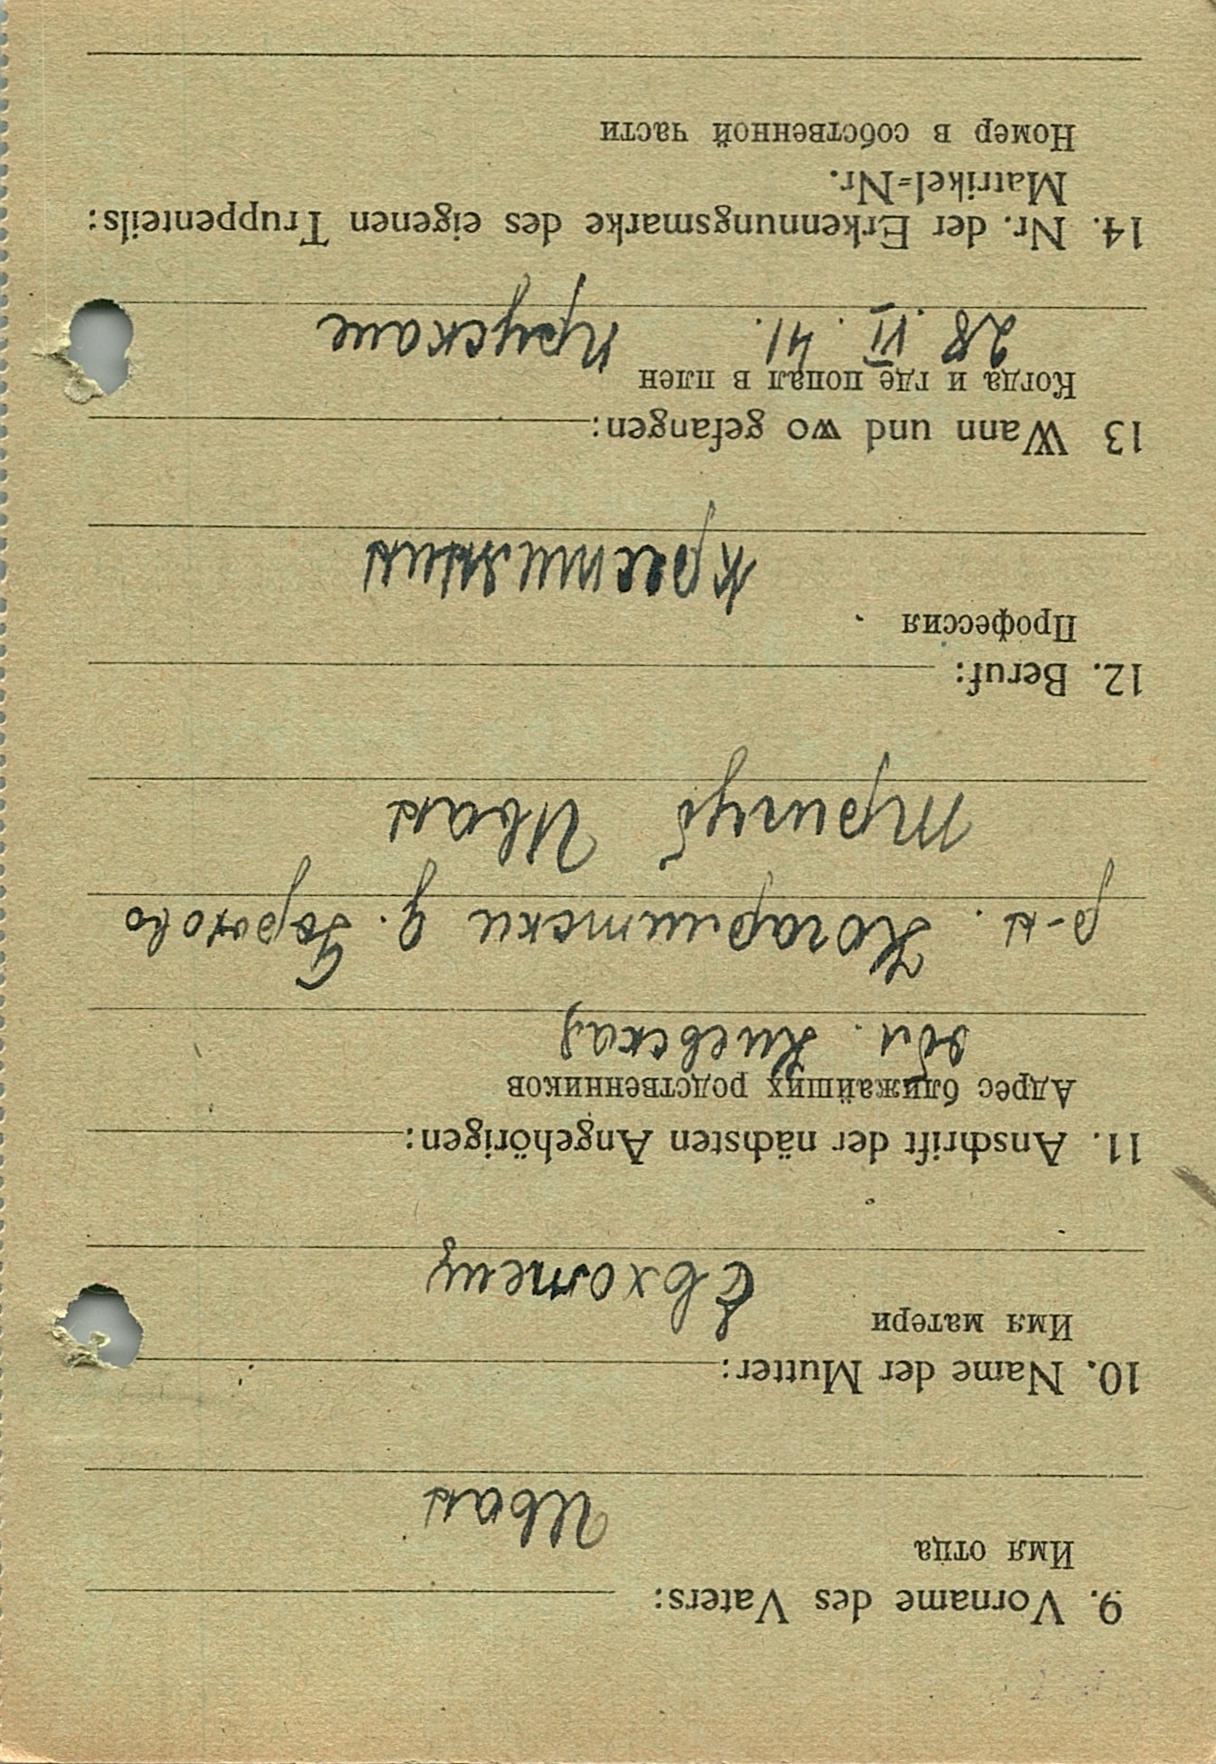 9. Vorname des Vaters:
Имя отца
Иван
10. Name der Mutter:
Имя матери
11. Anschrift der nächsten Angehörigen:
Адрес ближайших родственников
обл. Киевская
р-н. д. Горохово
Тригуб Иван
12. Beruf:
Профессия
крестиянин
13 Wann und wo gefangen:
Когда и где попал в плен
28. VI. 41. Прускаие
14. Nr. der Erkennungsmarke des eigenen Truppenteils:
Matrikel=Nr.
Номер в собственной части